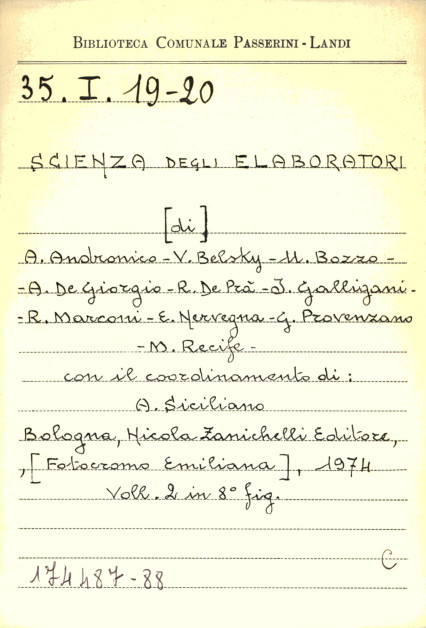 BIBLIOTECA COMUNALE PASSERINI-LANDI
35. I. 19-20
SCIENZA DEGLI ELABORATORI
[di]
A. Andronico - V. Belsky - M. Bozzo -
- A. De Giorgio - R. De Prà - I. Galligani -
- R. Marconi - E. Nervegna - G. Provenzano
- M. Recife -
con il coordinamento di:
A. Siciliano
Bologna, Nicola Zanichelli Editore,
, [Fotocromo Emiliana], 1974
Voll. 2 in 8° fig.
C
174487-88